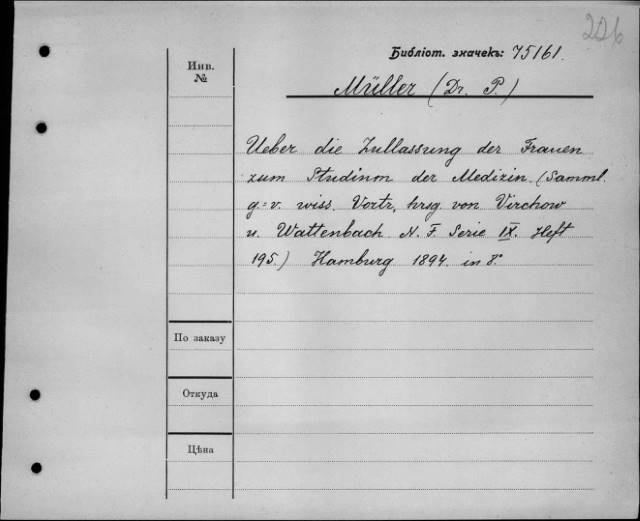 226
Библіот. значекъ: 75161.
Инв. №
Müller (Dr. P.)
Ueber die Zullassung der Frauen
zum Studinm der Medizin. (Samml.
g=v. wiss. Vortr, hrsg. von Virchow
u. Wattenbach. N. F. Serie IX. Heft
195.) Hamburg 1894. in 8º
По заказу
Откуда
Цѣна